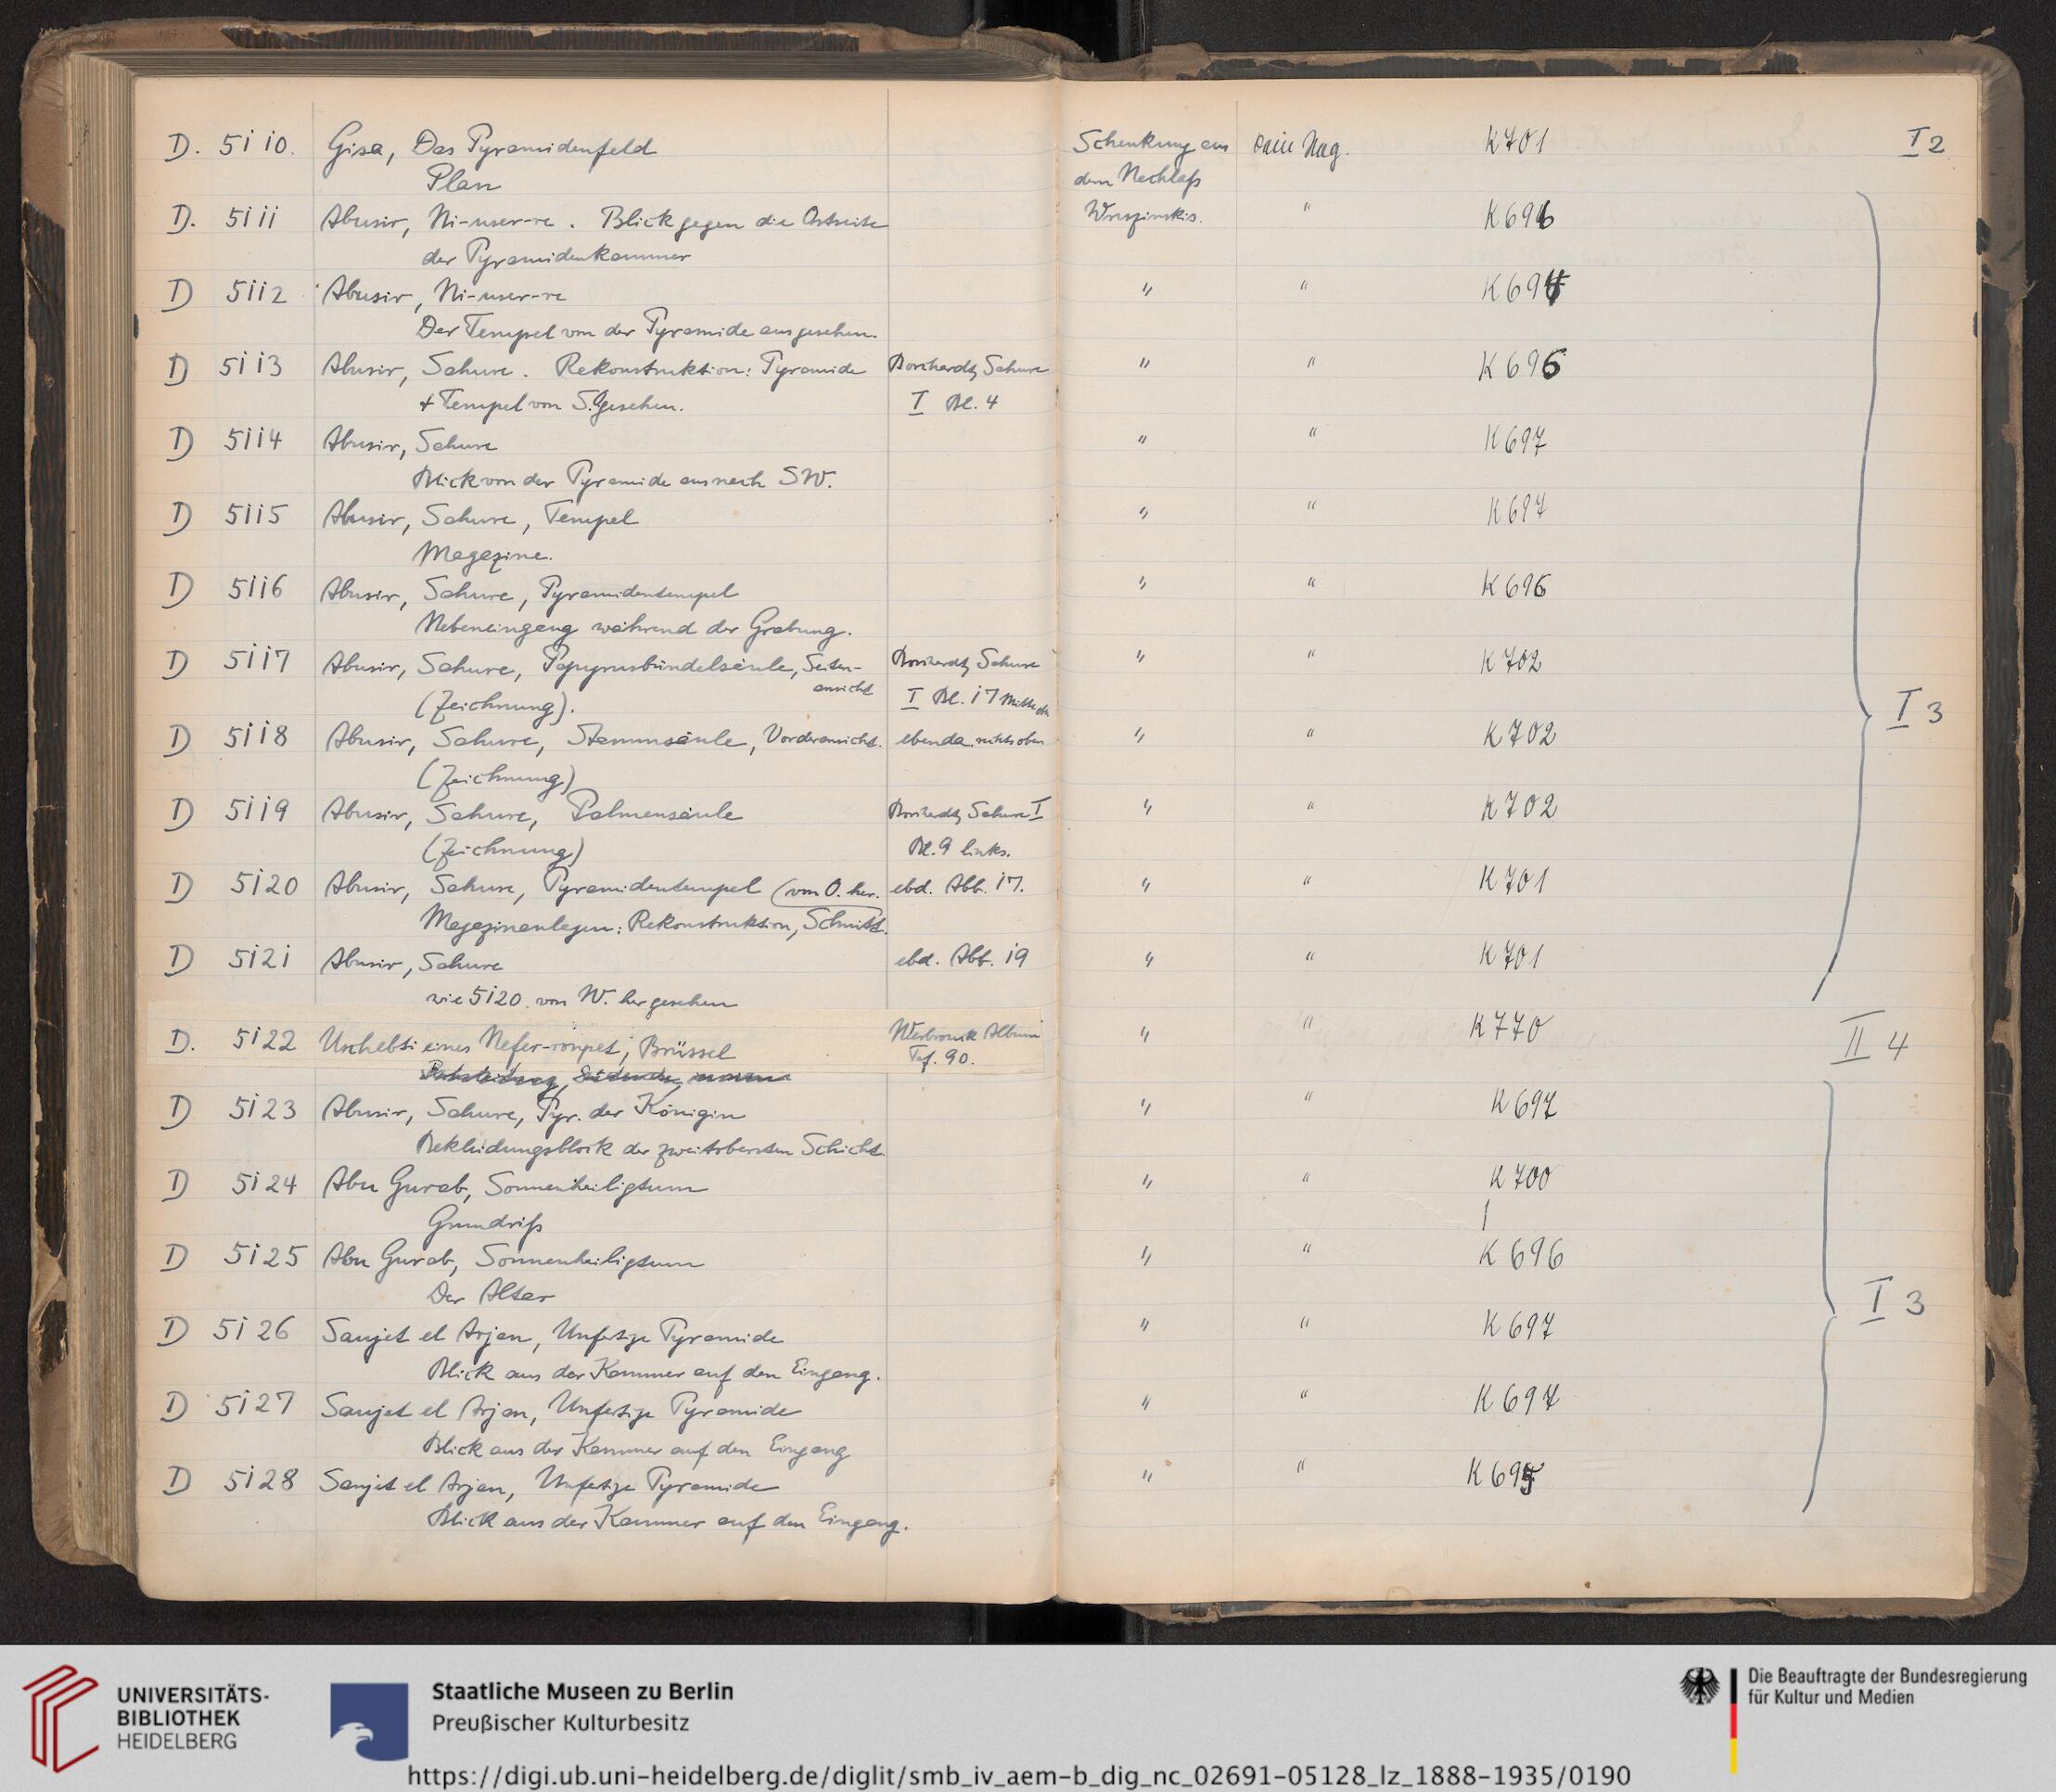 D. 5110. Gisa, Das Pyramidenfeld Schenkung aus kein Neg. K701 I 2
Plan dem Nachlaß
D. 5111 Abusir, Ni-user-re. Blick gegen die Ostseite Wreszinskis. " K696
der Pyramidenkammer
D 5112 Abusir, Ni-user-re " " K694
Der Tempel von der Pyramide aus gesehen.
D 5113 Abusir, Sahure. Rekonstruktion: Pyramide Borchardt, Sahure " " K696
+ Tempel von S. gesehen. I Bl. 4
D 5114 Abusir, Sahure " " K697
Blick von der Pyramide aus nach SW.
D 5115 Abusir, Sahure, Tempel " " K697
Magazine.
D 5116 Abusir, Sahure, Pyramidentempel " " K696
Nebeneingang während der Grabung.
D 5117 Abusir, Sahure, Papyrusbündelsäule, Seiten- Borchardt, Sahure " " K702
ansicht
(Zeichnung). I Bl. 17 Mitte
I 3
D 5118 Abusir, Sahure, Stammsäule, Vorderansicht. ebenda rechts oben " " K702
(Zeichnung)
D 5119 Abusir, Sahure, Palmensäule Borchardt, Sahure I " " K702
(Zeichnung) Bl. 9 links.
D 5120 Abusir, Sahure, Pyramidentempel (von O. her. ebd. Abb. 17. " " K701
Magazinanlagen: Rekonstruktion, Schnitt.
D 5121 Abusir, Sahure ebd. Abb. 19 " " K701
wie 5120. von W. her gesehen
D. 5122 Uschebti eines Nefer-ronpet, Brüssel Werbrouck Album " " K770 II 4
Taf. 90.
D 5123 Abusir, Sahure, Pyr. der Königin " " K697
Bekleidungsblock der zweitobersten Schicht
D 5124 Abu Gurab, Sonnenheiligtum " " K700
Grundriß
D 5125 Abu Gurab, Sonnenheiligtum " " K696
Der Altar
I 3
D 5126 Saujet el Arjan, Unfertige Pyramide " " K697
Blick aus der Kammer auf den Eingang.
D 5127 Saujet el Arjan, Unfertige Pyramide " " K697
Blick aus der Kammer auf den Eingang
D 5128 Saujet el Arjan, Unfertige Pyramide " " K695
Blick aus der Kammer auf den Eingang.
UNIVERSITÄTS-
BIBLIOTHEK
HEIDELBERG
Staatliche Museen zu Berlin
Preußischer Kulturbesitz
Die Beauftragte der Bundesregierung
für Kultur und Medien
https://digi.ub.uni-heidelberg.de/diglit/smb_iv_aem-b_dig_nc_02691-05128_lz_1888-1935/0190